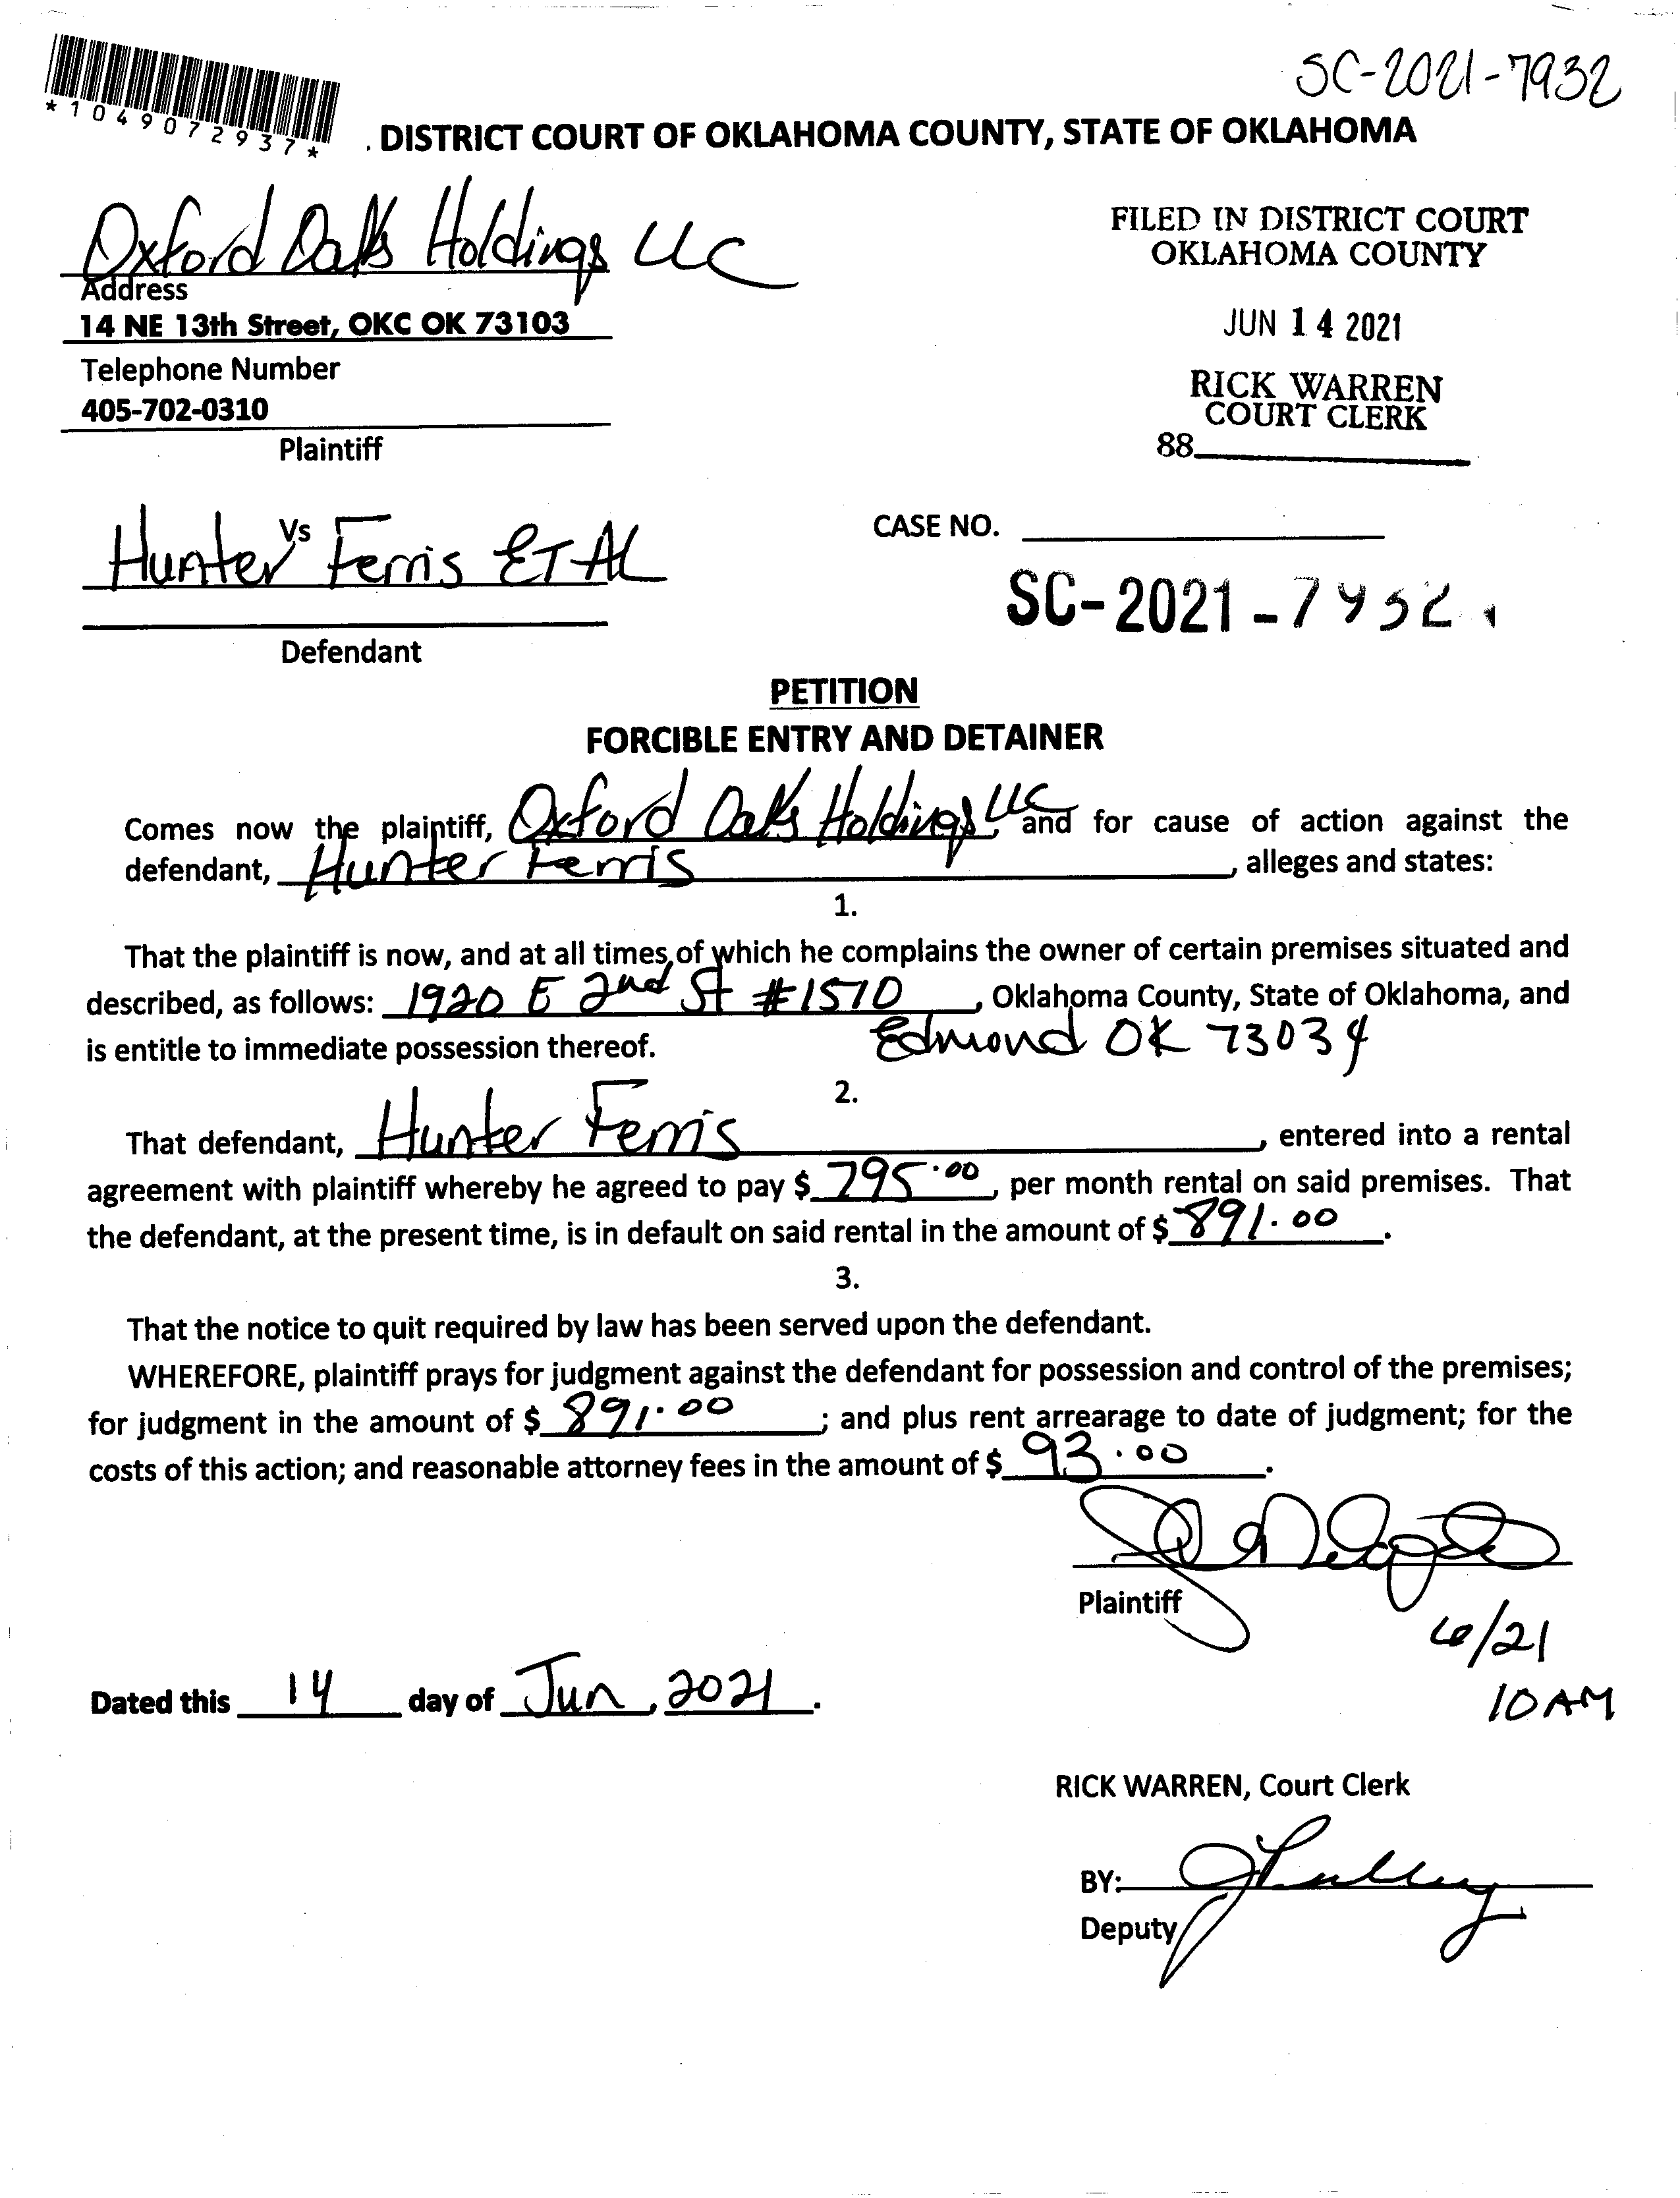 SC-2021-7932
*1049072937*
DISTRICT COURT OF OKLAHOMA COUNTY, STATE OF OKLAHOMA
Oxford Oaks Holdings LLC
Address
14 NE 13th Street, OKC OK 73103
Telephone Number
405-702-0310
Plaintiff
FILED IN DISTRICT COURT
OKLAHOMA COUNTY
JUN 14 2021
RICK WARREN
COURT CLERK
88
Vs
Hunter Ferris ET AL
Defendant
CASE NO.
SC-2021-7932
PETITION
FORCIBLE ENTRY AND DETAINER
Comes now the plaintiff, Oxford Oaks Holdings, LLC and for cause of action against the
defendant, Hunter Ferris, alleges and states:
1.
That the plaintiff is now, and at all times of which he complains the owner of certain premises situated and
described, as follows: 1920 E 2nd St #1510, Oklahoma County, State of Oklahoma, and
is entitle to immediate possession thereof. Edmond OK 73034
2.
That defendant, Hunter Ferris, entered into a rental
agreement with plaintiff whereby he agreed to pay $ 795.00, per month rental on said premises. That
the defendant, at the present time, is in default on said rental in the amount of $ 891.00.
3.
That the notice to quit required by law has been served upon the defendant.
WHEREFORE, plaintiff prays for judgment against the defendant for possession and control of the premises;
for judgment in the amount of $ 891.00; and plus rent arrearage to date of judgment; for the
costs of this action; and reasonable attorney fees in the amount of $ 93.00.
Plaintiff
6/21
10 AM
Dated this 14 day of Jun, 2021.
RICK WARREN, Court Clerk
BY:
Deputy